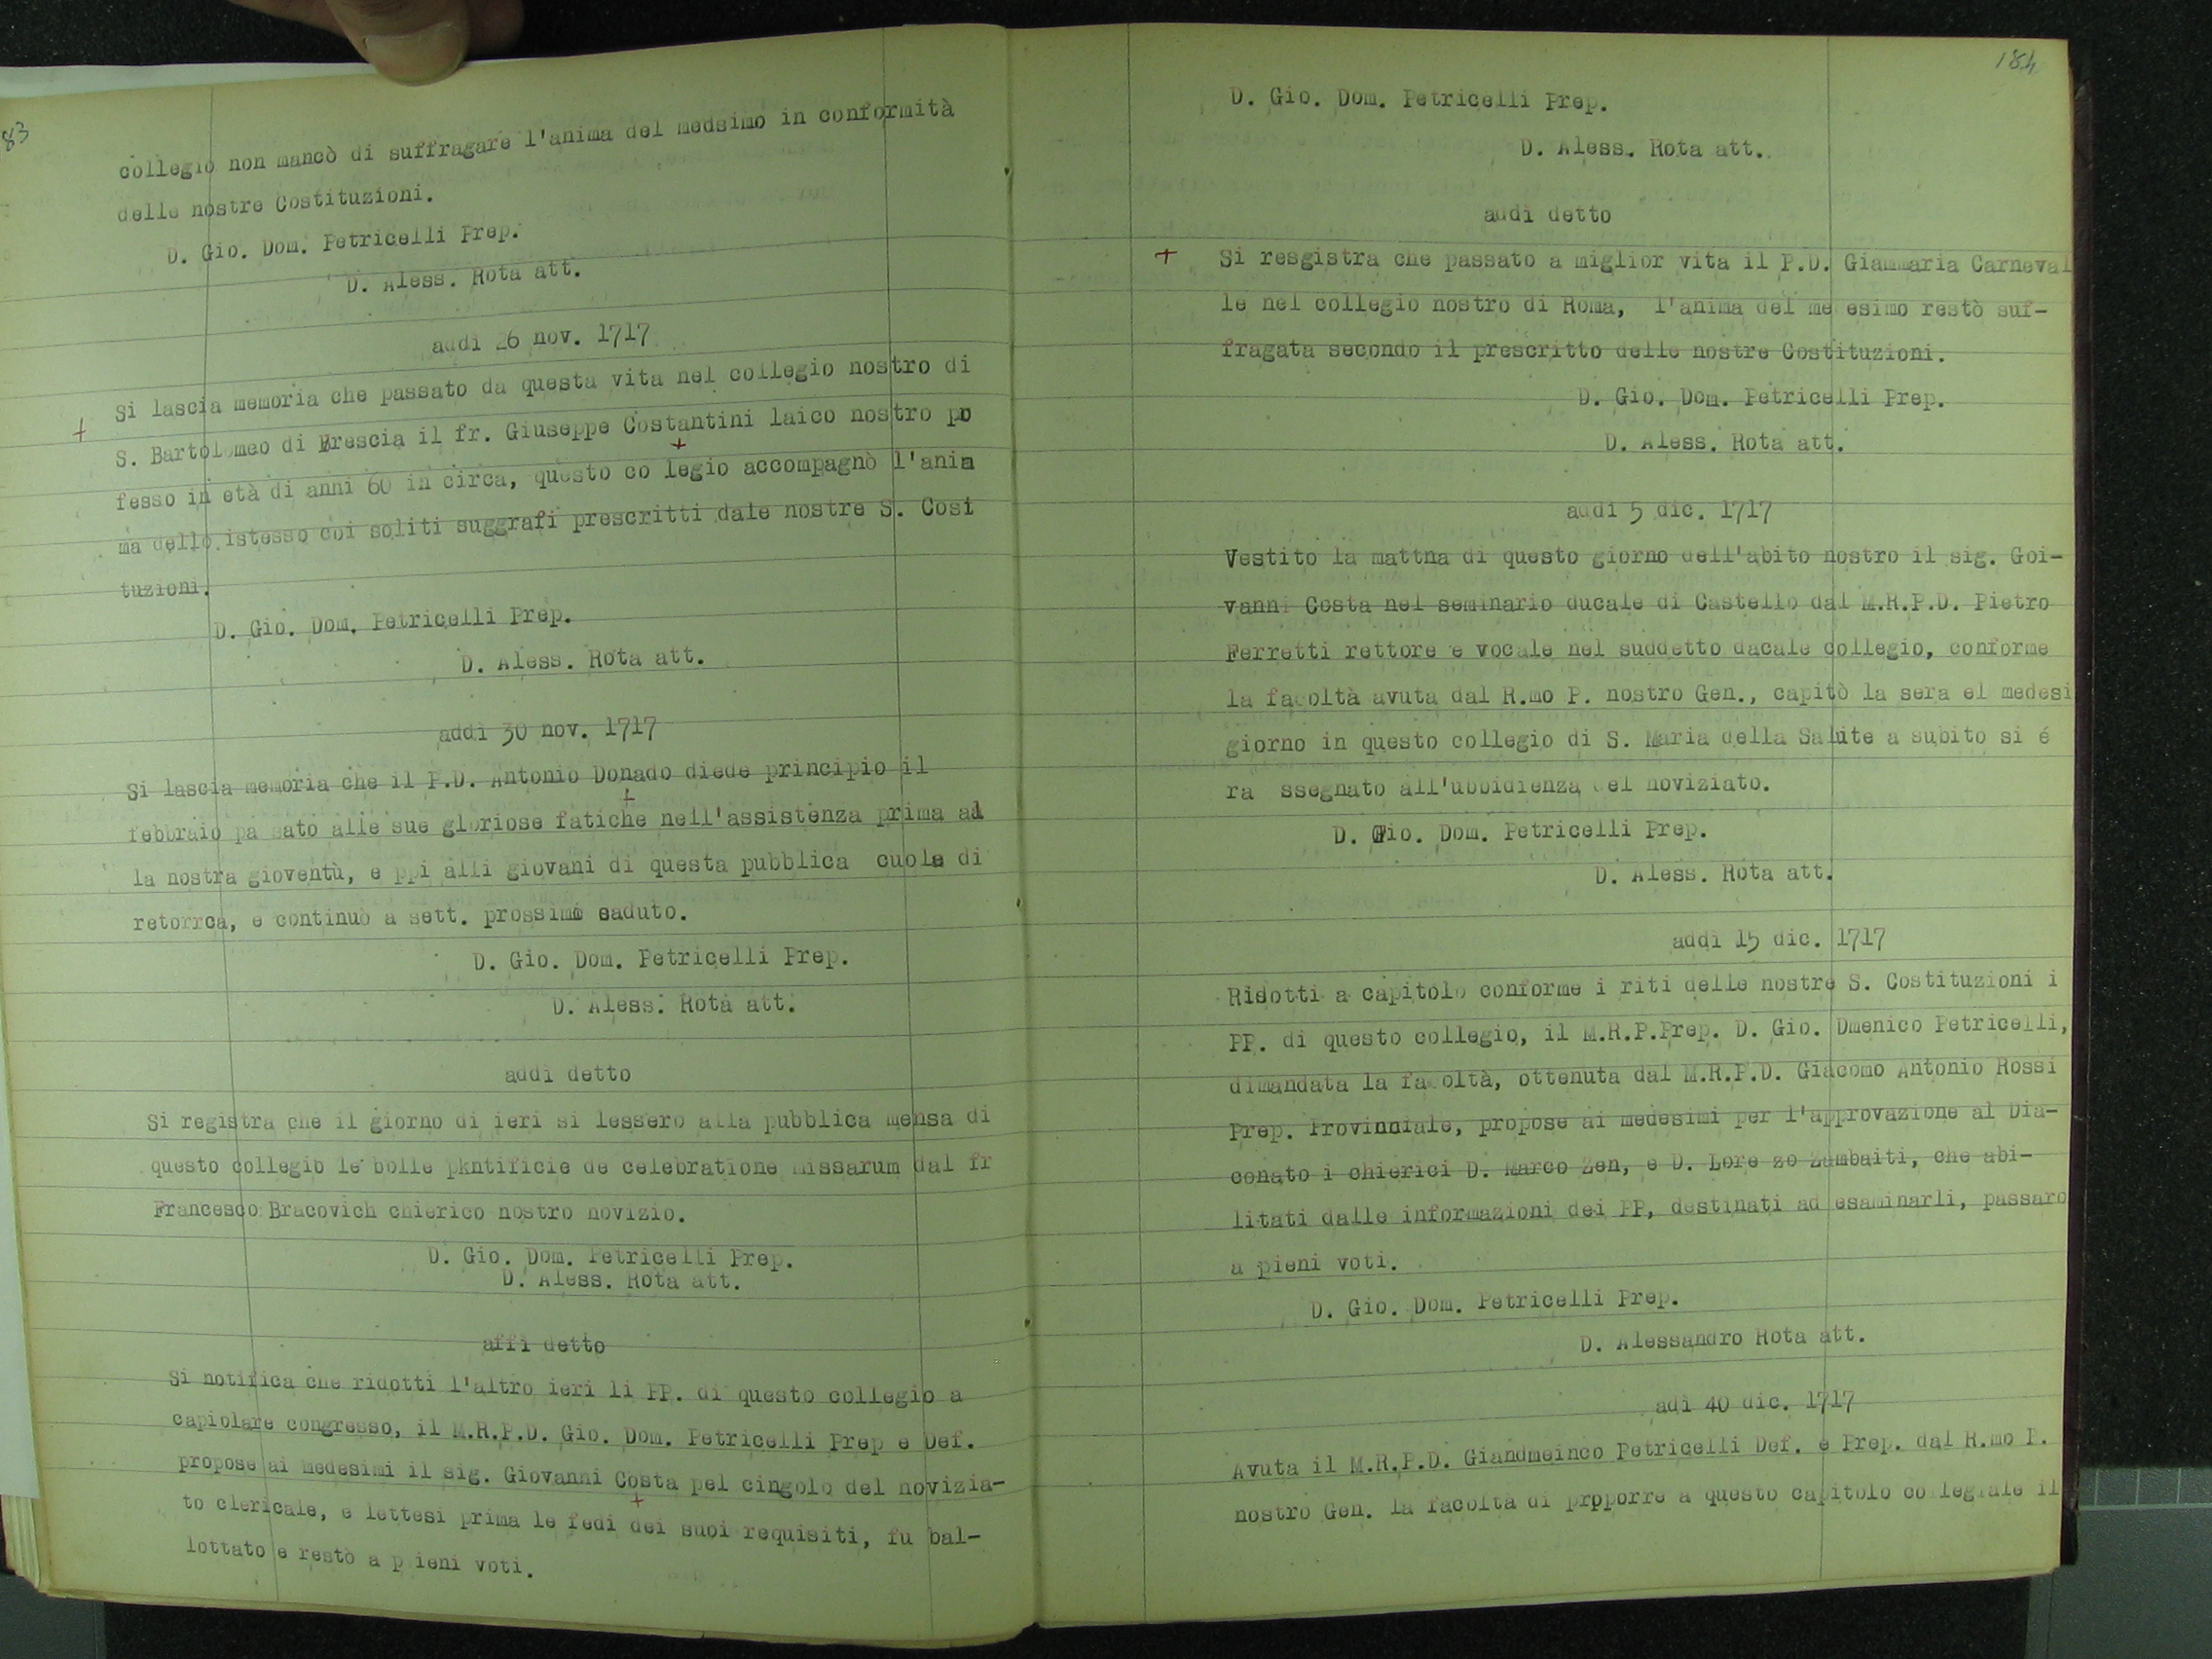 83
collegio non mancò di suffragare l'anima del medsimo in conformità
delle nostre Costituzioni.
D. Gio. Dom. Petricelli Prep.
D. Aless. Rota att.
addì 26 nov. 1717
Si lascia memoria che passato da questa vita nel collegio nostro di
+ S. Bartolomeo di Brescia il fr. Giuseppe Costantini laico nostro pro
fesso in età di anni 60 in circa, questo co legio accompagnò l'anim
ma dello istesso coi soliti suggrafi prescritti dale nostre S. Costi
tuzioni.
D. Gio. Dom. Petricelli Prep.
D. Aless. Rota att.
addì 30 nov. 1717
Si lascia memoria che il P.D. Antonio Donado diede principio il
febbraio pa sato alle sue gloriose fatiche nell'assistenza prima al
la nostra gioventù, e ppi alli giovani di questa pubblica cuola di
retorrca, e continuò a sett. prossimo caduto.
D. Gio. Dom. Petricelli Prep.
D. Aless. Rota att.
addì detto
Si registra che il giorno di ieri si lessero alla pubblica mensa di
questo collegio le bolle pkntificie de celebratione missarum dal fr
Francesco Bracovich chierico nostro novizio.
D. Gio. Dom. Petricelli Prep.
D. Aless. Rota att.
affì detto
Si notifica che ridotti l'altro ieri li PP. di questo collegio a
capiolare congresso, il M.R.P.D. Gio. Dom. Petricelli Prep e Def.
propose ai medesimi il sig. Giovanni Costa pel cingolo del novizia-
to clericale, e lettesi prima le fedi dei suoi requisiti, fu bal-
lottato e restò a p ieni voti.
184
D. Gio. Dom. Petricelli Prep.
D. Aless. Rota att.
addì detto
+ Si resgistra che passato a miglior vita il P.D. Giammaria Carneval
le nel collegio nostro di Roma, l'anima del me esimo restò suf-
fragata secondo il prescritto delle nostre Costituzioni.
D. Gio. Dom. Petricelli Prep.
D. Aless. Rota att.
addì 5 dic. 1717
Vestito la mattna di questo giorno dell'abito nostro il sig. Goi-
vanni Costa nel seminario ducale di Castello dal M.R.P.D. Pietro
Ferretti rettore e vocale nel suddetto dacale collegio, conforme
la facoltà avuta dal R.mo P. nostro Gen., capitò la sera el medesi
giorno in questo collegio di S. Maria della Salute a subito si é
ra ssegnato all'ubbidienza del noviziato.
D. Gio. Dom. Petricelli Prep.
D. Aless. Rota att.
addì 15 dic. 1717
Ridotti a capitolo conforme i riti delle nostre S. Costituzioni i
PP. di questo collegio, il M.R.P.Prep. D. Gio. Dmenico Petricelli,
dimandata la facoltà, ottenuta dal M.R.P.D. Giacomo Antonio Rossi
Prep. Provinciale, propose ai medesimi per l'approvazione al Dia-
conato i chierici D. Marco Zen, e D. Lore zo Zambaiti, che abi-
litati dalle informazioni dei PP, destinati ad esaminarli, passaro
a pieni voti.
D. Gio. Dom. Petricelli Prep.
D. Alessandro Rota att.
adì 40 dic. 1717
Avuta il M.R.P.D. Giandmeinco Petricelli Def. e Prep. dal R.mo P.
nostro Gen. la facoltà di prpporre a questo capitolo collegiale il